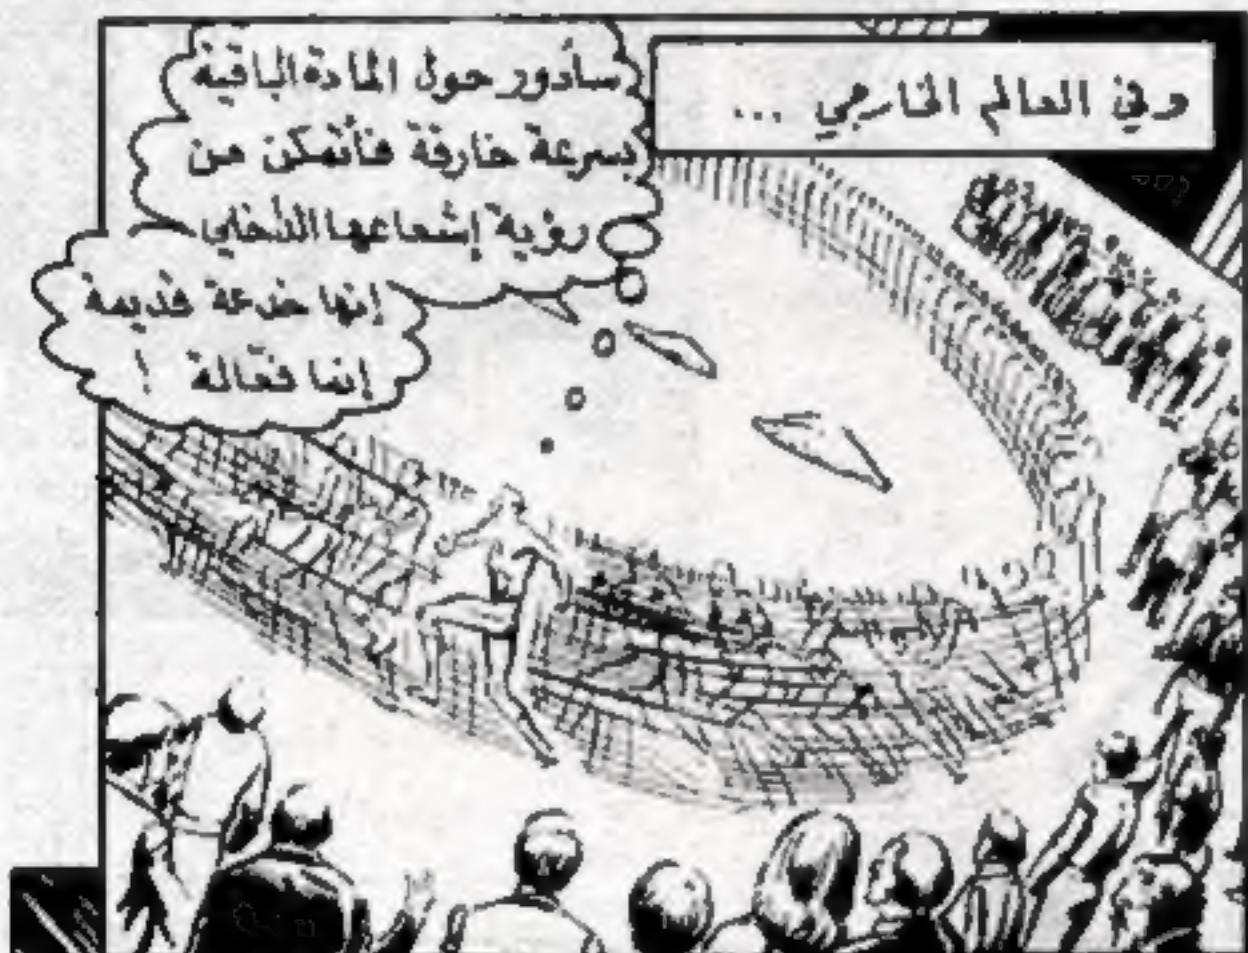 وفي العالم الخارجي ...
سأدور حول المادة الباقية
بسرعة خارقة فأتمكن من
رؤية إشعاعها الداخلي
إنها خدعة قديمة
إنما فعّالة !